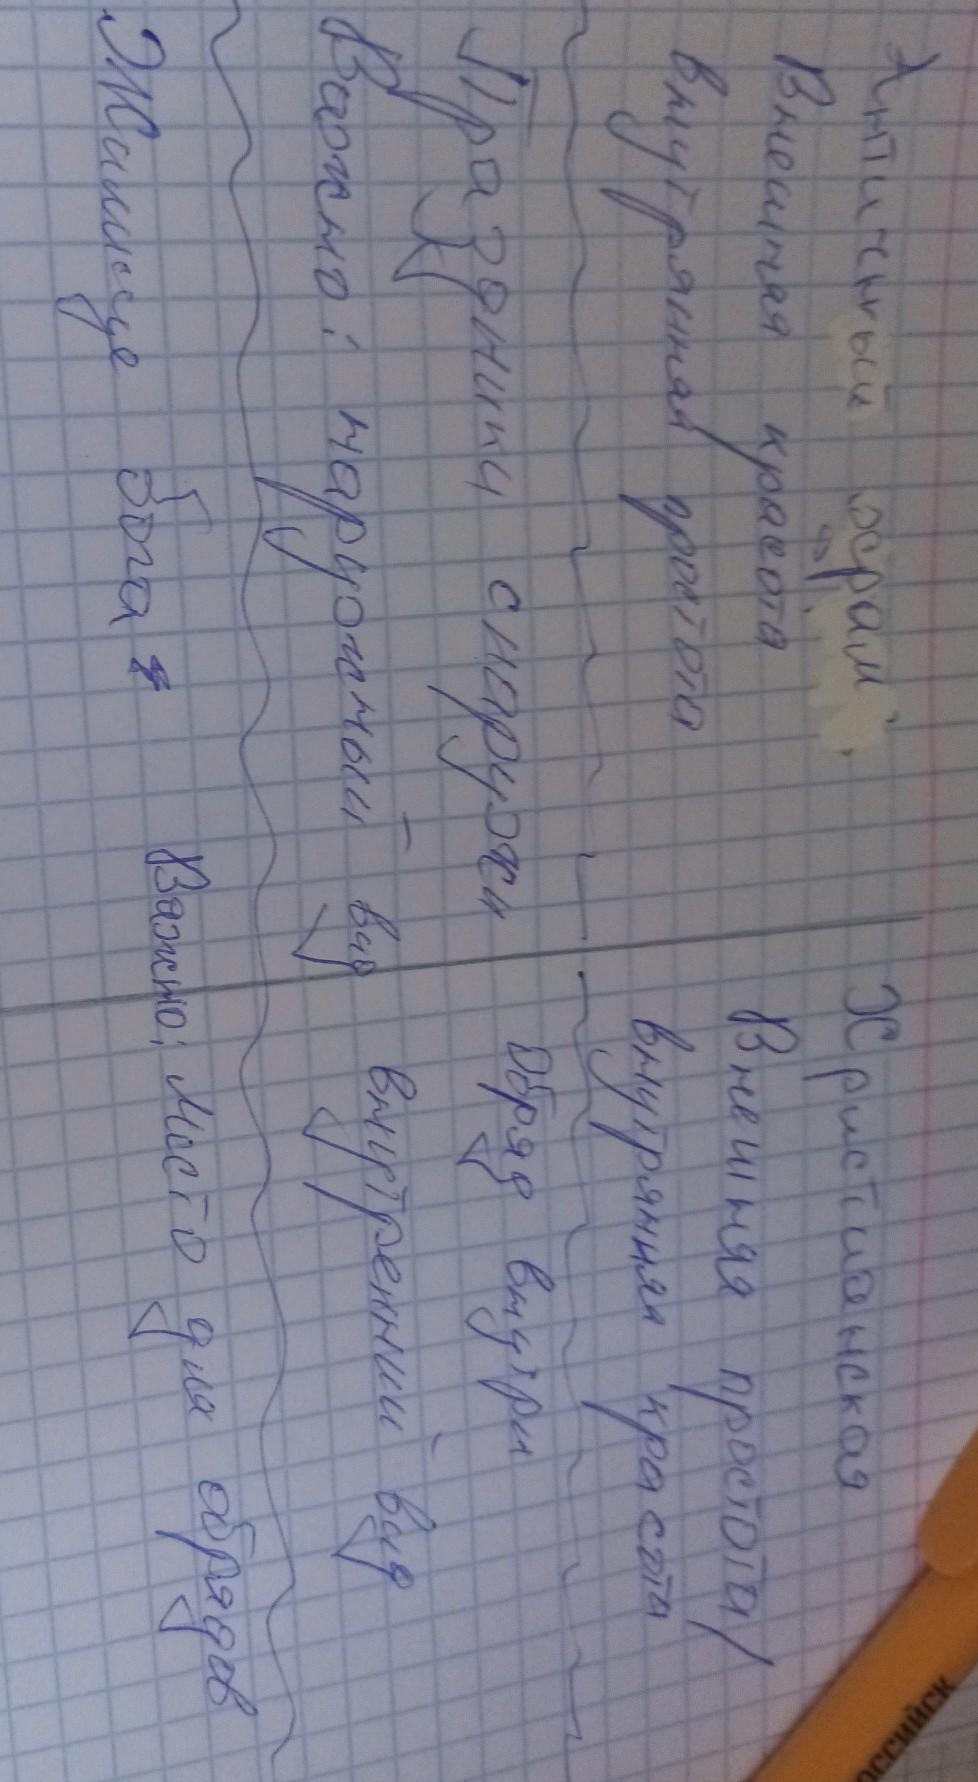 Античный храм
Внешняя красота
внутрянняя простота
Праздники снаружи
Важно: наружный вид
Жилище бога
Христианская
Внешняя простота/
внутрянняя красота
Обряд внутри
внутренний вид
Важно: Место для обрядов
оссийск